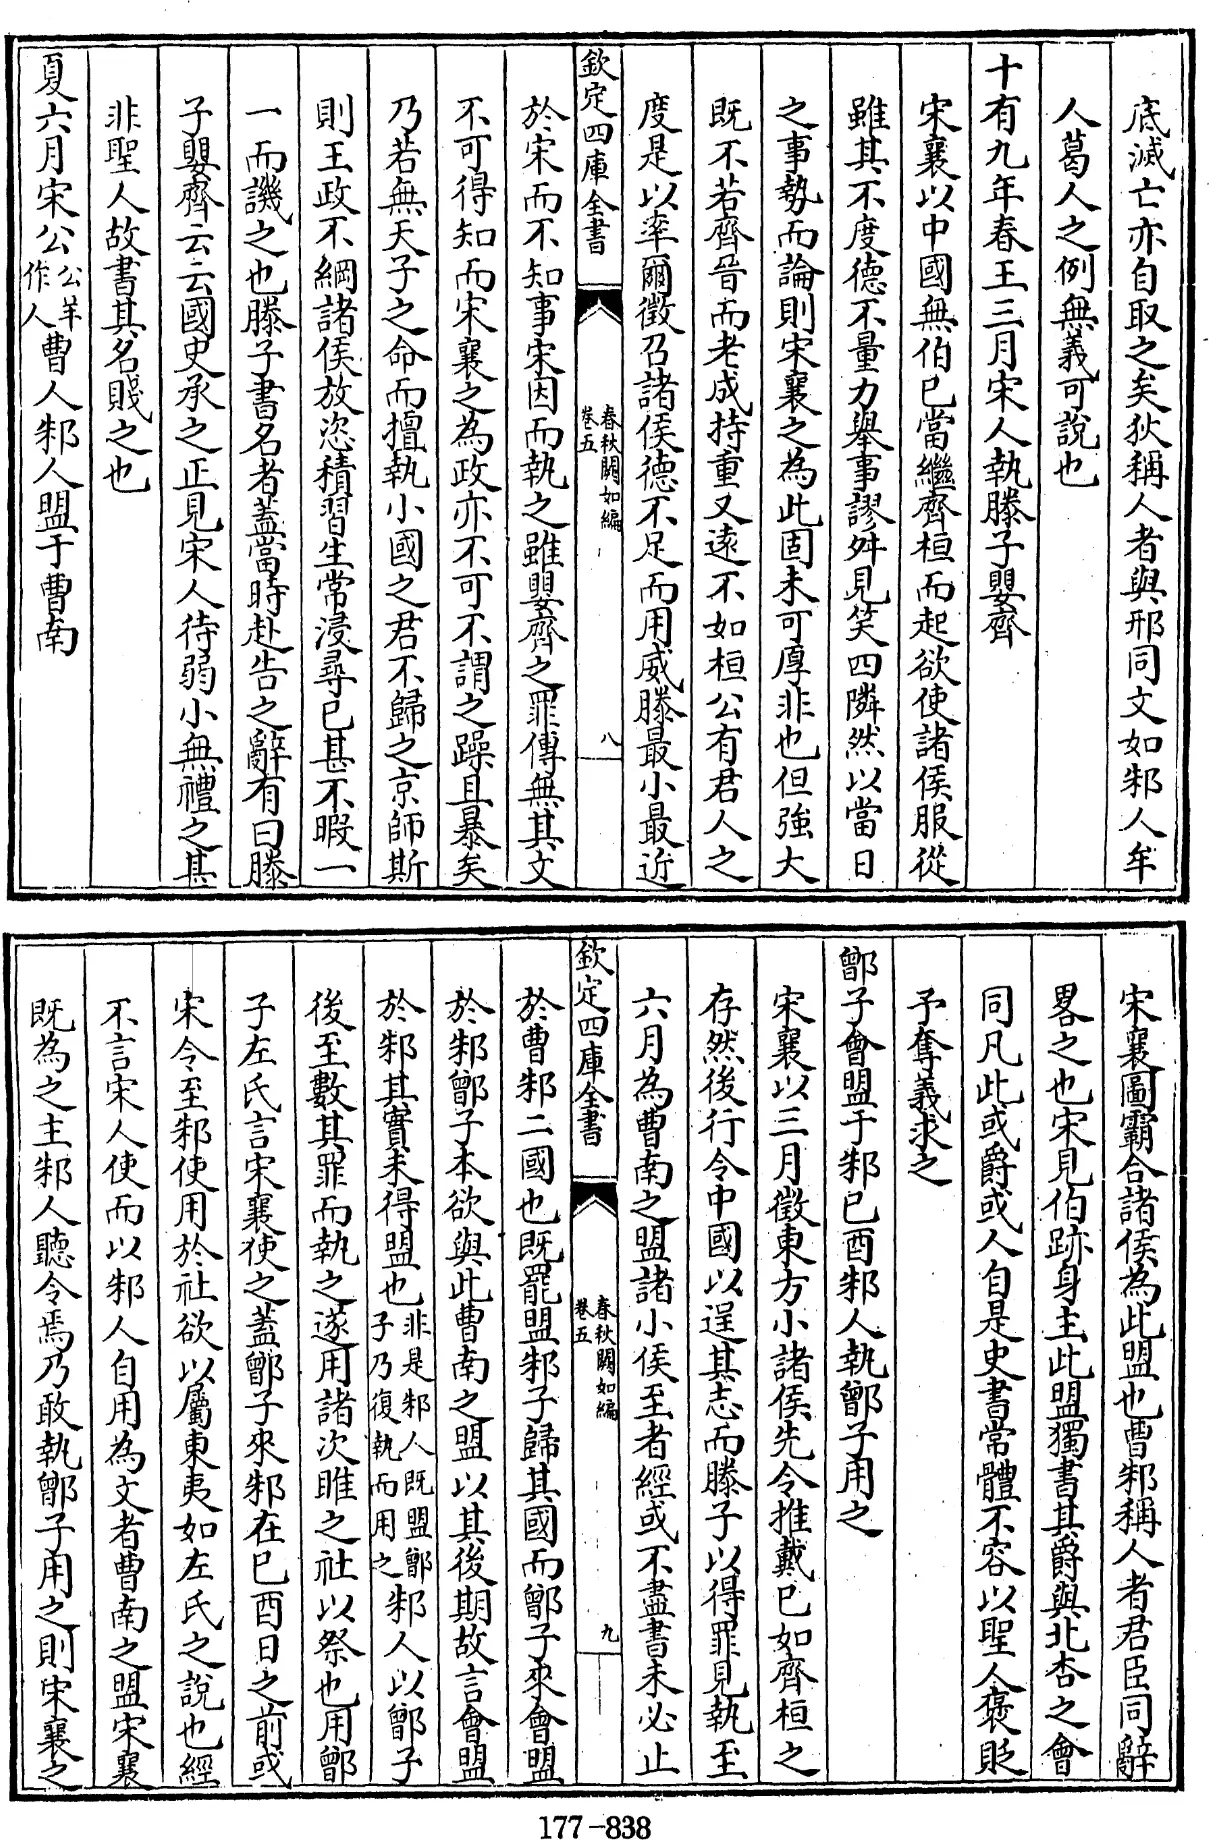 底滅亡亦自取之矣狄稱人者與邢同文如邾人牟
人葛人之例無義可說也
十有九年春王三月宋人執滕子嬰齊
宋襄以中國無伯已當繼齊桓而起欲使諸侯服從
雖其不度德不量力舉事謬舛見笑四隣然以當日
之事勢而論則宋襄之為此固未可厚非也但強大
既不若齊晉而老成持重又遠不如桓公有君人之
度是以率爾徵召諸侯德不足而用威滕最小最近
欽定四庫全書
春秋闕如編
卷五
八
於宋而不知事宋因而執之雖嬰齊之罪傳無其文
不可得知而宋襄之為政亦不可不謂之躁且暴矣
乃若無天子之命而擅執小國之君不歸之京師斯
則王政不綱諸侯放恣積習生常浸尋已甚不暇一
一而譏之也滕子書名者蓋當時赴告之辭有曰滕
子嬰齊云云國史承之正見宋人待弱小無禮之甚
非聖人故書其名賤之也
夏六月宋公公羊作人曹人邾人盟于曹南
宋襄圖霸合諸侯為此盟也曹邾稱人者君臣同辭
畧之也宋見伯跡身主此盟獨書其爵與北杏之會
同凡此或爵或人自是史書常體不容以聖人褒貶
予奪義求之
鄫子會盟于邾已酉邾人執鄫子用之
宋襄以三月徵東方小諸侯先令推戴已如齊桓之
存然後行令中國以逞其志而滕子以得罪見執至
六月為曹南之盟諸小侯至者經或不盡書未必止
欽定四庫全書
春秋闕如編
卷五
九
於曹邾二國也既罷盟邾子歸其國而鄫子來會盟
於邾鄫子本欲與此曹南之盟以其後期故言會盟
於邾其實未得盟也非是邾人既盟鄫子乃復執而用之邾人以鄫子
後至數其罪而執之遂用諸次睢之社以祭也用鄫
子左氏言宋襄使之蓋鄫子來邾在已酉日之前或
宋令至邾使用於社欲以屬東夷如左氏之說也經
不言宋人使而以邾人自用為文者曹南之盟宋襄
既為之主邾人聽令焉乃敢執鄫子用之則宋襄之
177-838